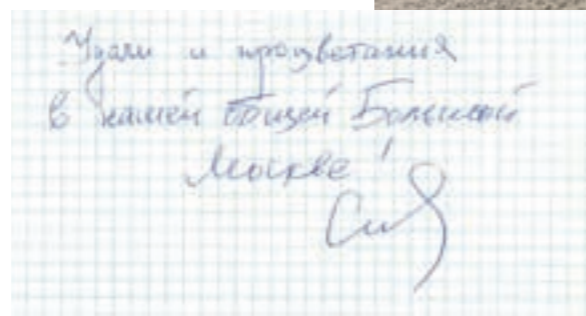 Удачи и процветания
в нашей общей Большой
Москве!